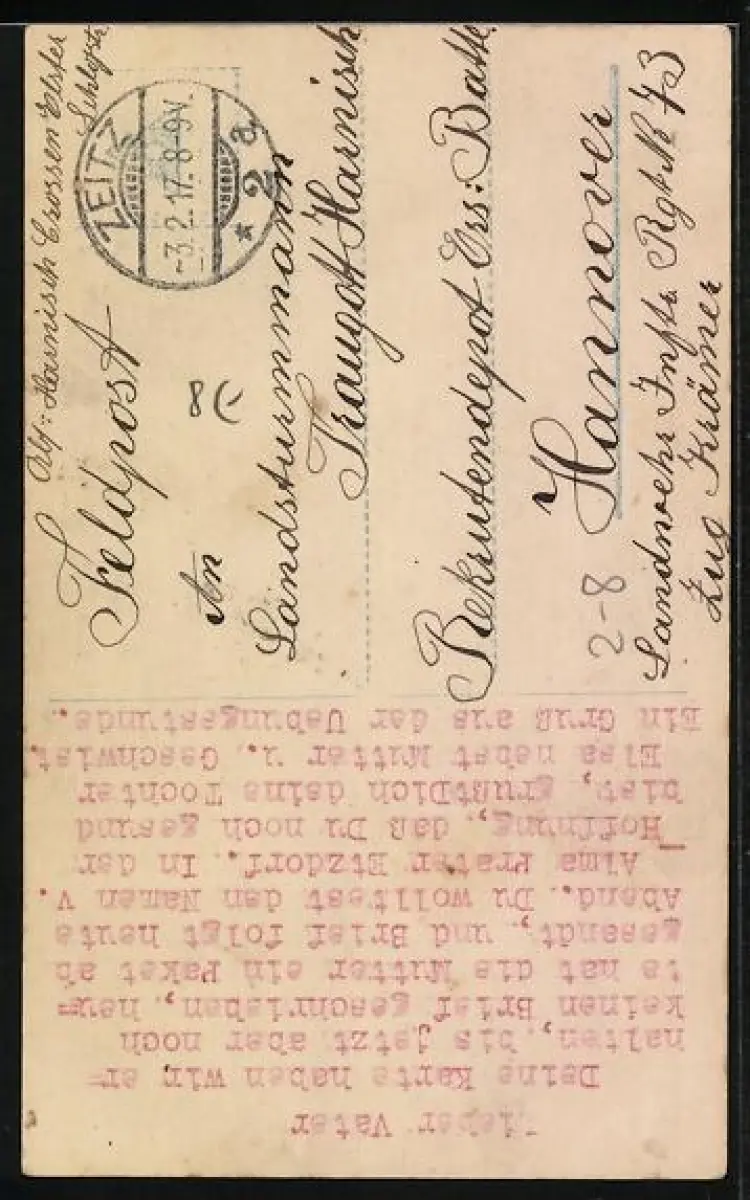 Abs: Harnisch Crossen Elster
Feldpost
An
Landsturmmann
Traugott Harnisch
Rekrutendepot Ers: Batl.
Hannover
Landwehr Inftr Rgt N 73
Zug Krämer
ZEITZ
-3.2.17. 8-9V.
* 2 a
2-8
Lieber Vater
Deine Karte haben wir er=
halten, bis jetzt aber noch
keinen Brief geschrieben, heu=
te hat die Mutter ein Paket ab
gesandt, und Brief folgt heute
Abend. Du wolltest den Namen v.
Alma Prater Etzdorf. In der
Hoffnung, daß Du noch gesund
bist, grüßtDich deine Tochter
Elsa nebst Mutter u. Geschwist.
Ein Gruß aus der Uebungsstunde.